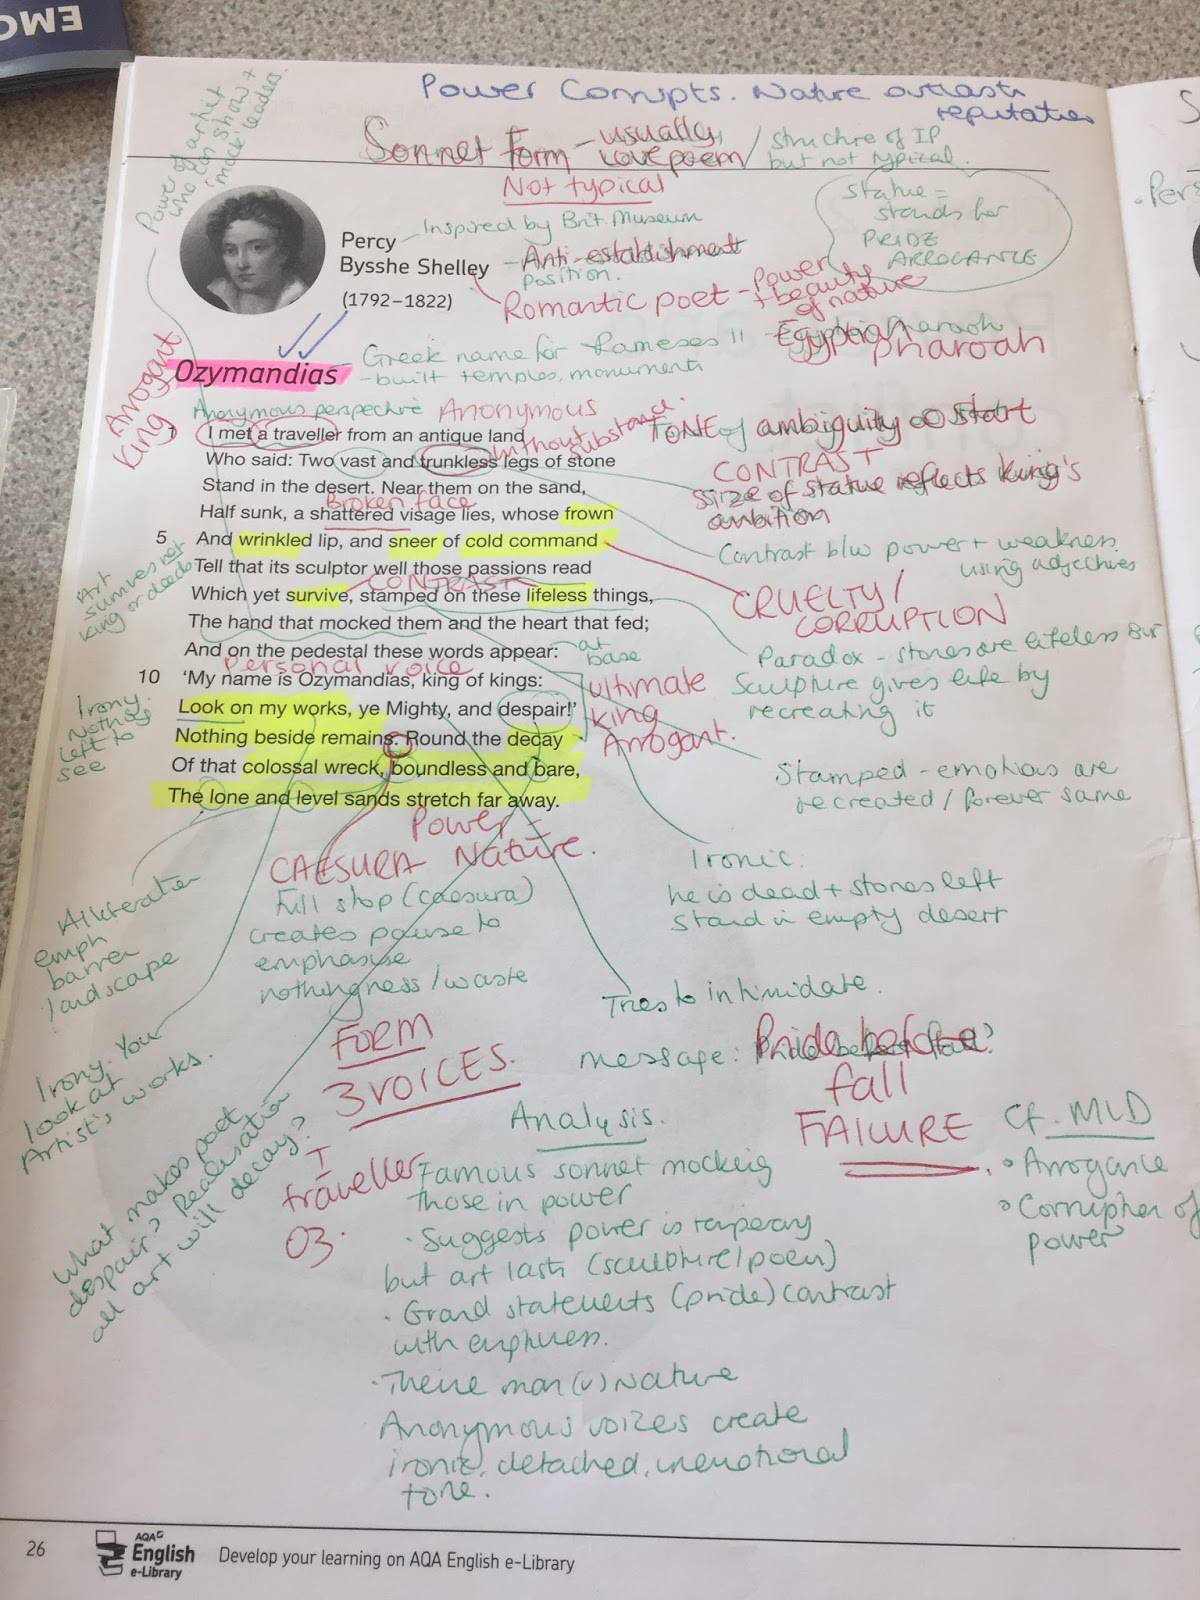 EMC
Power Corrupts. Nature outlasts
reputation
Sonnet Form - usually
love poem / structure of IP
but not typical.
Not typical
Power of artist
who can show +
'mock' leaders.
statue =
stands for
PRIDE
ARROGANCE
Percy
Bysshe Shelley
(1792–1822)
Inspired by Brit Museum
- Anti-establishment
position.
Romantic poet - Power
+ beauty
of nature
Ozymandias
Greek name for Rameses II - Egyptian Pharaoh
- built temples, monuments
pharoah
Arrogant
King
Anonymous perspective
Anonymous
without substance.
TONE of ambiguity @ start
I met a traveller from an antique land
Who said: Two vast and trunkless legs of stone
Stand in the desert. Near them on the sand,
Broken face
Half sunk, a shattered visage lies, whose frown
5 And wrinkled lip, and sneer of cold command
Tell that its sculptor well those passions read
CONTRAST
Which yet survive, stamped on these lifeless things,
The hand that mocked them and the heart that fed;
And on the pedestal these words appear:
at
base
Personal voice
10 'My name is Ozymandias, king of kings:
Look on my works, ye Mighty, and despair!'
Nothing beside remains. Round the decay
Of that colossal wreck, boundless and bare,
The lone and level sands stretch far away.
CONTRAST
size of statue reflects king's
ambition
Contrast b/w power + weakness
using adjectives
CRUELTY /
CORRUPTION
Paradox - stones are lifeless But
Sculpture gives life by
recreating it
ultimate
king
Arrogant.
Stamped - emotions are
recreated / forever same
Art
survives not
king or deeds
Irony.
Nothing
left to
see
Power -
Nature.
CAESURA
Full stop (caesura)
creates pause to
emphasise
nothingness / waste
Ironic:
he is dead + stones left
stand in empty desert
Alliteration
emph
barren
landscape
Tries to intimidate.
Irony. You
look at
Artist's works.
FORM
3 VOICES.
I
traveller
OZ.
message: Pride before
fall
FAILURE
What makes poet
despair? Realisation
all art will decay?
Analysis.
Famous sonnet mocking
those in power
· Suggests power is temporary
but art lasts (sculpture/poem)
· Grand statements (pride) contrast
with emptiness.
· Theme man (v) Nature
Anonymous voices create
ironic, detached, unemotional
tone.
Cf. MLD
• Arrogance
• Corruption of
power
26
AQA
English
e-Library
Develop your learning on AQA English e-Library